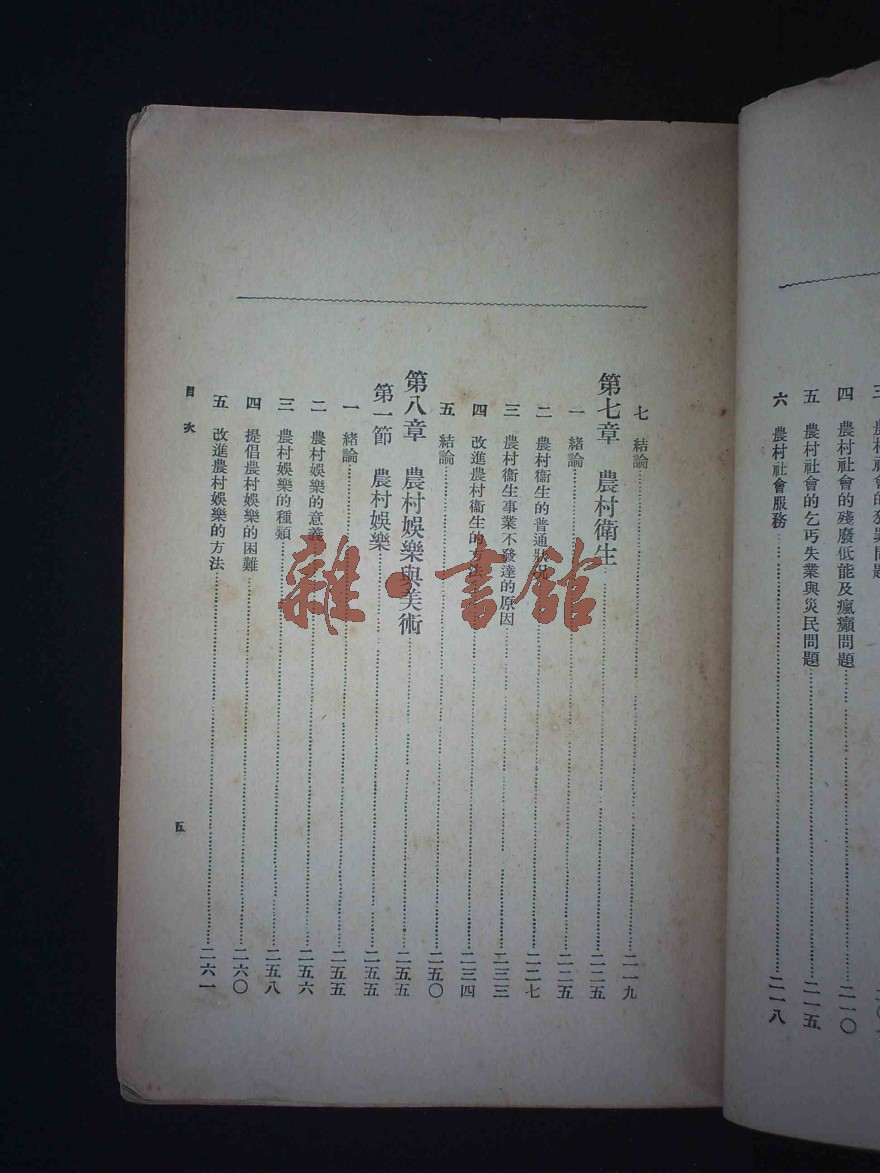 四 農村社會的殘廢低能及瘋癲問題……二一〇
五 農村社會的乞丐失業與災民問題……二一五
六 農村社會服務……二一八
七 結論……二一九
第七章 農村衛生……二二五
一 緒論……二二五
二 農村衛生的普通狀況……二二七
三 農村衛生事業不發達的原因……二三三
四 改進農村衛生的方法……二三四
五 結論……二五〇
第八章 農村娛樂與美術……二五五
第一節 農村娛樂……二五五
一 緒論……二五五
二 農村娛樂的意義……二五六
三 農村娛樂的種類……二五八
四 提倡農村娛樂的困難……二六〇
五 改進農村娛樂的方法……二六一
目次
五
雜·書館